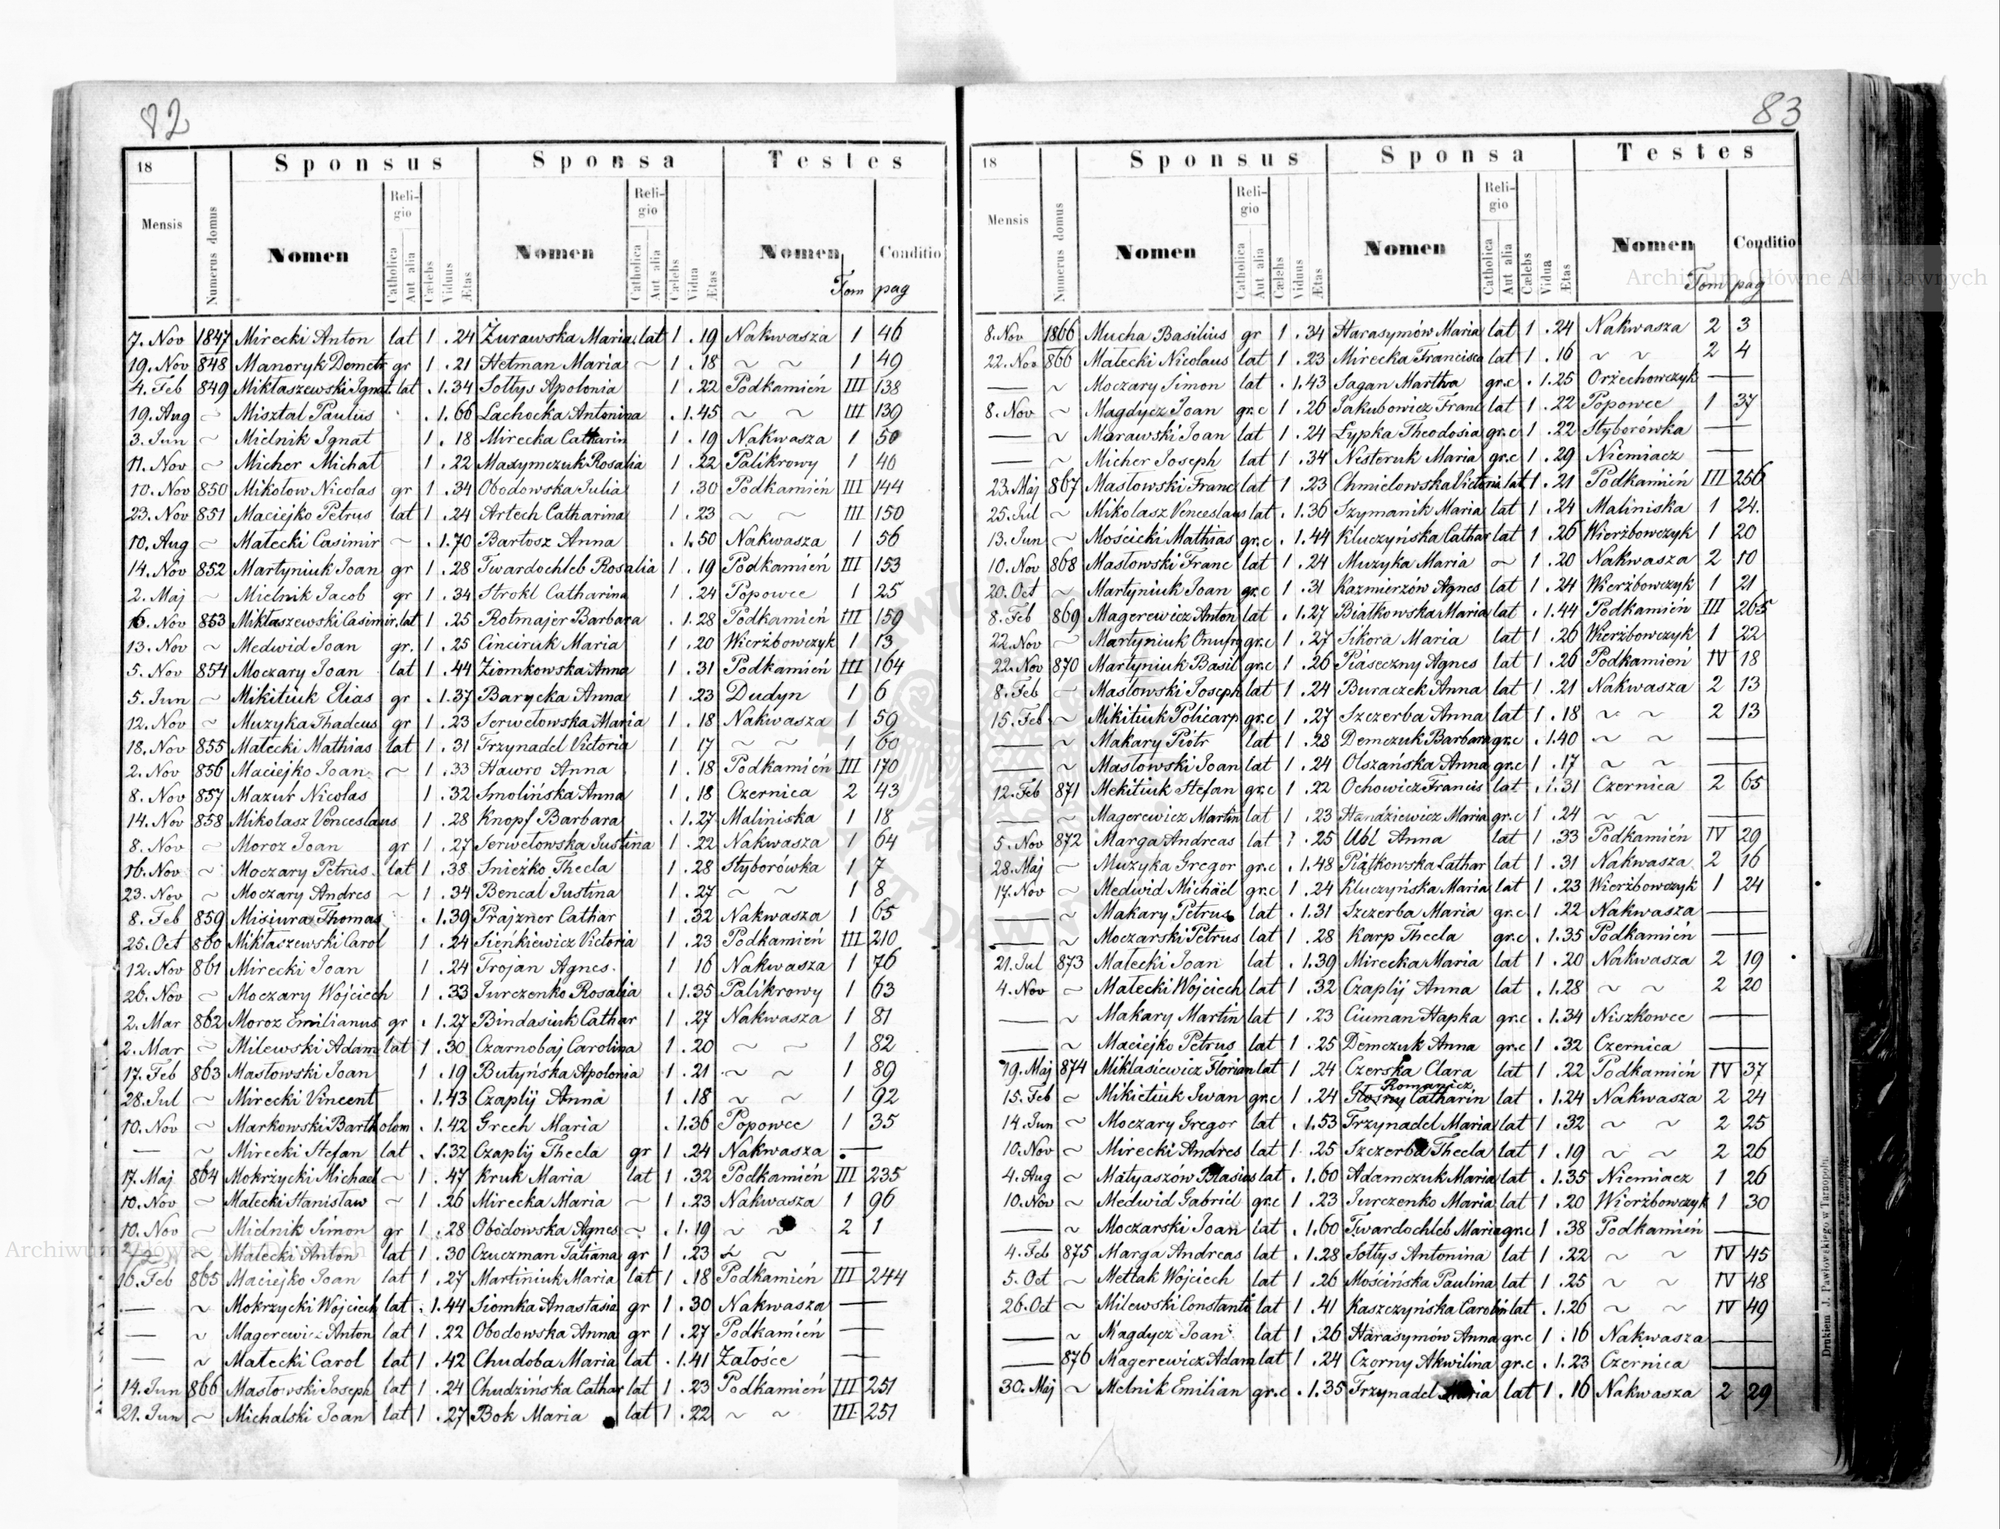 82
18 Sponsus Sponsa Testes
Mensis Numerus domus Nomen Religio Catholica Aut alia Cælebs Viduus Ætas Nomen Religio Catholica Aut alia Cælebs Vidua Ætas Nomen Conditio
Tom pag
7. Nov 1847 Mirecki Anton lat 1 . 24 Żurawska Maria lat 1 . 19 Nakwasza 1 46
19. Nov 848 Manoryk Demetr gr 1 . 21 Hetman Maria ~ 1 . 18 ~ ~ 1 49
4. Feb 849 Mikłaszewski Ignat. lat . 1. 34 Sołtys Apolonia 1 . 22 Podkamień III 138
19. Aug ~ Misztal Paulus . 1. 66 Lachocka Antonina . 1. 45 ~ ~ III 139
3. Jun ~ Mielnik Ignat 1 . 18 Mirecka Catharin 1 . 19 Nakwasza 1 50
11. Nov ~ Micher Michał 1 . 22 Maxymczuk Rosalia 1 . 22 Palikrowy 1 40
10. Nov 850 Mikołow Nicolas gr 1 . 34 Obodowska Julia 1 . 30 Podkamień III 144
23. Nov 851 Maciejko Petrus lat 1 . 24 Artech Catharina 1 . 23 ~ ~ III 150
10. Aug ~ Małecki Casimir ~ . 1. 70 Bartosz Anna . 1. 50 Nakwasza 1 56
14. Nov 852 Martyniuk Joan gr 1 . 28 Twardochleb Rosalia 1 . 19 Podkamień III 153
2. Maj ~ Mielnik Jacob gr 1 . 34 Strokl Catharina 1 . 24 Popowce 1 25
16. Nov 853 Mikłaszewski Casimir. lat 1 . 25 Rotmajer Barbara . 1. 28 Podkamień III 159
13. Nov ~ Medwid Joan gr. 1 . 25 Cinciruk Maria 1 . 20 Wierżbowczyk 1 13
5. Nov 854 Moczary Joan lat 1 . 44 Ziomkowska Anna 1 . 31 Podkamień III 164
5. Jun ~ Mikitiuk Elias gr . 1. 37 Barycka Anna 1 . 23 Dudyn 1 6
12. Nov ~ Muzyka Thadeus gr 1 . 23 Serwetowska Maria 1 . 18 Nakwasza 1 59
18. Nov 855 Małecki Mathias lat 1 . 31 Trzynadel Victoria 1 17 ~ ~ 1 60
2. Nov 856 Maciejko Joan ~ 1 . 33 Hawro Anna 1 . 18 Podkamień III 170
8. Nov 857 Mazur Nicolas 1 . 32 Smolińska Anna 1 . 18 Czernica 2 43
14. Nov 858 Mikolasz Venceslaus 1 . 28 Knopf Barbara . 1. 27 Maliniska 1 18
8. Nov ~ Moroz Joan gr 1 . 27 Serwetowska Justina 1 . 22 Nakwasza 1 64
16. Nov ~ Moczary Petrus lat 1 . 38 Snieżko Thecla 1 . 28 Styborówka 1 7
23. Nov ~ Moczary Andres ~ 1 . 34 Bencal Justina 1 . 27 ~ ~ 1 8
8. Feb 859 Misiura Thomas . 1. 39 Prajzner Cathar 1 . 32 Nakwasza 1 65
25. Oct 860 Mikłaszewski Carol 1 . 24 Sieńkiewicz Victoria 1 . 23 Podkamień III 210
12. Nov 861 Mirecki Joan 1 . 24 Trojan Agnes. 1 16 Nakwasza 1 76
26. Nov ~ Moczary Wojciech 1 . 33 Jurczenko Rosalia . 1. 35 Palikrowy 1 63
2. Mar 862 Moroz Emilianus gr . 1. 27 Bindasiuk Cathar 1 . 27 Nakwasza 1 81
2. Mar ~ Milewski Adam lat 1 . 30 Czarnobaj Carolina 1 . 20 ~ ~ 1 82
17. Feb 863 Masłowski Joan 1 . 19 Butyńska Apolonia 1 . 21 ~ ~ 1 89
28. Jul ~ Mirecki Vincent . 1. 43 Czaplij Anna 1 . 18 ~ ~ 1 92
10. Nov ~ Markowski Bartholom . 1. 42 Grech Maria . 1. 36 Popowce 1 35
— ~ Mirecki Stefan lat . 1. 32 Czaplij Thecla gr 1 . 24 Nakwasza —
17. Maj 864 Mokrzycki Michael ~ 1 . 47 Kruk Maria lat 1 . 32 Podkamień III 235
10. Nov ~ Małecki Stanisław ~ 1 . 26 Mirecka Maria ~ 1 . 23 Nakwasza 1 96
10. Nov ~ Mielnik Simon gr 1 . 28 Obodowska Agnes ~ . 1. 19 ~ ~ 2 1
~ Małecki Anton lat 1 . 30 Czuczman Tatiana gr 1 . 23 ~ ~ —
16. Feb 865 Maciejko Joan lat 1 . 27 Martiniuk Maria lat 1 . 18 Podkamień III 244
— ~ Mokrzycki Wojciech lat . 1. 44 Siomka Anastasia gr 1 . 30 Nakwasza —
— ~ Magerewicz Anton lat 1 . 22 Obodowska Anna gr 1 . 27 Podkamień —
— ~ Małecki Carol lat 1 . 42 Chudoba Maria lat . 1. 41 Załośce —
14. Jun 866 Masłowski Joseph lat 1 . 24 Chudzińska Cathar lat 1 . 23 Podkamień III 251
21. Jun ~ Michalski Joan lat 1 . 27 Bok Maria lat 1 . 22 ~ ~ III 251
83
18 Sponsus Sponsa Testes
Mensis Numerus domus Nomen Religio Catholica Aut alia Cælebs Viduus Ætas Nomen Religio Catholica Aut alia Cælebs Vidua Ætas Nomen Conditio
Tom pag
8. Nov 1866 Mucha Basilius gr 1 . 34 Harasymów Maria lat 1 . 24 Nakwasza 2 3
22. Nov 866 Małecki Nicolaus lat 1 . 23 Mirecka Francisca lat 1 . 16 ~ ~ 2 4
— ~ Moczary Simon lat . 1. 43 Sagan Martha gr.c . 1. 25 Orżechowczyk —
8. Nov ~ Magdycz Joan gr.c 1 . 26 Jakubowicz Franc lat 1 . 22 Popowce 1 37
— ~ Marawski Joan lat 1 . 24 Łypka Theodosia gr.c 1 . 22 Styborówka —
— ~ Micher Joseph lat 1 . 34 Nesteruk Maria gr.c 1 . 29 Niemiacz —
23. Maj 867 Masłowski Franc lat 1 . 23 Chmielowska Victoria lat 1 . 21 Podkamień III 256
25. Jul ~ Mikolasz Venceslaus lat . 1. 36 Szymanik Maria lat 1 . 24 Maliniska 1 24.
13. Jun ~ Mościcki Mathias gr.c . 1. 44 Kluczyńska Cathar lat 1 . 26 Wierżbowczyk 1 20
10. Nov 868 Masłowski Franc lat 1 . 24 Muzyka Maria ~ 1 . 20 Nakwasza 2 10
20. Oct ~ Martyniuk Joan gr.c 1 . 31 Kazmierzów Agnes lat 1 . 24 Wierżbowczyk 1 21
8. Feb 869 Magerewicz Anton lat . 1. 27 Białkowska Maria lat . 1. 44 Podkamień III 265
22. Nov ~ Martyniuk Onufry gr.c 1 . 27 Sikora Maria lat 1 . 26 Wierżbowczyk 1 22
22. Nov 870 Martyniuk Basil gr.c 1 . 26 Piaseczny Agnes lat 1 . 26 Podkamień IV 18
8. Feb ~ Masłowski Joseph lat 1 . 24 Buraczek Anna lat 1 . 21 Nakwasza 2 13
15. Feb ~ Mikitiuk Policarp gr.c 1 . 27 Szczerba Anna lat 1 . 18 ~ ~ 2 13
— ~ Makary Piotr lat 1 . 28 Demczuk Barbara gr.c . 1. 40 ~ ~ —
— ~ Masłowski Joan lat 1 . 24 Olszańska Anna gr.c 1 . 17 ~ ~ —
12. Feb 871 Mekitiuk Stefan gr.c 1 . 22 Ochowicz Francis lat . 1. 31 Czernica 2 65
— ~ Magerewicz Martin lat 1 . 23 Handziewicz Maria gr.c 1 . 24 ~ ~ —
5. Nov 872 Marga Andreas lat 1 . 25 Ubl Anna lat 1 . 33 Podkamień IV 29
28. Maj ~ Muzyka Gregor gr.c . 1. 48 Piątkowska Cathar lat 1 . 31 Nakwasza 2 16
17. Nov ~ Medwid Michael gr.c 1 . 24 Kluczyńska Maria lat 1 . 23 Wierżbowczyk 1 24
— ~ Makary Petrus lat . 1. 31 Szczerba Maria gr.c 1 . 22 Nakwasza —
— ~ Moczarski Petrus lat 1 . 28 Karp Thecla gr.c . 1. 35 Podkamień —
21. Jul 873 Małecki Joan lat . 1. 39 Mirecka Maria lat 1 . 20 Nakwasza 2 19
4. Nov ~ Małecki Wojciech lat 1 . 32 Czaplij Anna lat . 1. 28 ~ ~ 2 20
— ~ Makary Martin lat 1 . 23 Ciuman Hapka gr.c . 1. 34 Niszkowce —
— ~ Maciejko Petrus lat 1 . 25 Demczuk Anna gr.c 1 . 32 Czernica —
19. Maj 874 Miklasiewicz Florian lat 1 . 24 Czerska Clara lat 1 . 22 Podkamień IV 37
Romanicz
15. Feb ~ Mikietiuk Iwan gr.c 1 . 24 Catharin lat . 1. 24 Nakwasza 2 24
14. Jun ~ Moczary Gregor lat . 1. 53 Trzynadel Maria lat 1 . 32 ~ ~ 2 25
10. Nov ~ Mirecki Andres lat 1 . 25 Szczerba Thecla lat 1 . 19 ~ ~ 2 26
4. Aug ~ Matyaszów Blasius lat . 1. 60 Adamczuk Maria lat . 1. 35 Niemiacz 1 26
10. Nov ~ Medwid Gabriel gr.c 1 . 23 Jurczenko Maria lat 1 . 20 Wierżbowczyk 1 30
— ~ Moczarski Joan lat . 1. 60 Twardochleb Maria gr.c 1 . 38 Podkamień —
4. Feb 875 Marga Andreas lat . 1. 28 Sołtys Antonina lat 1 . 22 ~ ~ IV 45
5. Oct ~ Mettak Wojciech lat 1 . 26 Mościńska Paulina lat 1 . 25 ~ ~ IV 48
26. Oct ~ Milewski Constanti lat 1 . 41 Kaszczyńska Carolin lat . 1. 26 ~ ~ IV 49
— ~ Magdycz Joan lat 1 . 26 Harasymów Anna gr.c 1 . 16 Nakwasza —
— 876 Magerewicz Adam lat 1 . 24 Czorny Akwilina gr.c . 1. 23 Czernica —
30. Maj ~ Melnik Emilian gr.c . 1. 35 Trzynadel Maria lat 1 . 16 Nakwasza 2 29
Drukiem J. Pawłowskiego w Tarnopolu.
Archiwum Główne Akt Dawnych
Archiwum Główne Akt Dawnych